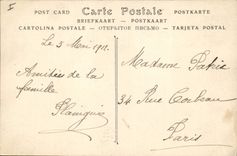 I
POST CARD Carte Postale POSTKARTE
BRIEFKAART — POSTKAART
CARTOLINA POSTALE — ОТКРЫТОЕ ПИСЬМО — TARJETA POSTAL
Le 3 Mai 1911.
Amitiés de la
famille
Madame
34 Rue
Paris